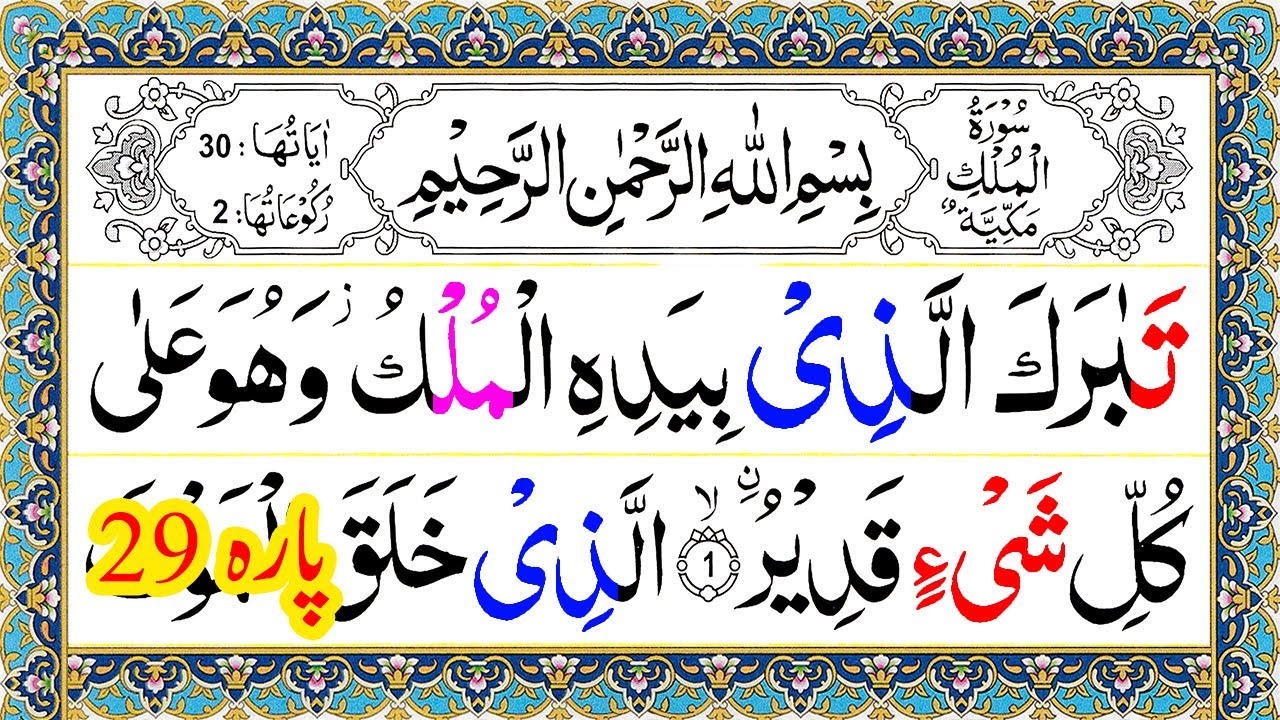 سُوْرَةُ
الْمُلْكِ
مَكِّيَّةٌ
بِسْمِ اللّٰهِ الرَّحْمٰنِ الرَّحِيْمِ
اٰيَاتُهَا: 30
رُكُوْعَاتُهَا: 2
تَبٰرَكَ الَّذِىْ بِيَدِهِ الْمُلْكُ ز وَهُوَ عَلٰى
كُلِّ شَىْءٍ قَدِيْرُ ۨ ۙ 1 الَّذِىْ خَلَقَ
پارہ 29